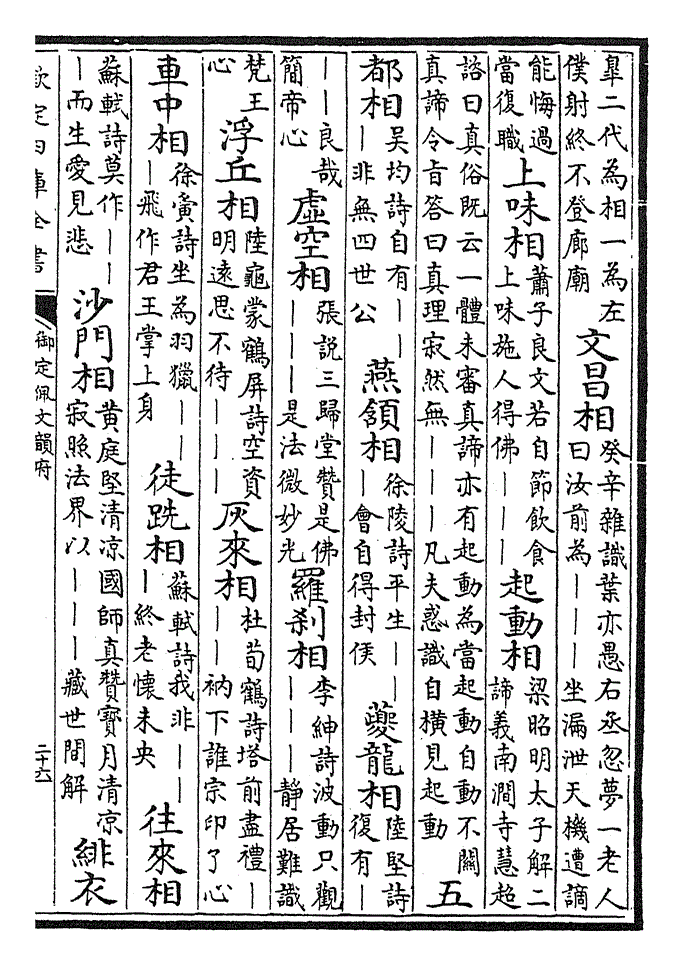 臯二代為相一為左僕射終不登廊廟 文昌相 癸辛雜識葉亦愚右丞忽夢一老人曰汝前為｜｜｜坐漏泄天機遭謫
能悔過當復職 上味相 蕭子良文若自節飲食上味施人得佛｜｜｜ 起動相 梁昭明太子解二諦義南澗寺慧超
諮曰真俗既云一體未審真諦亦有起動為當起動自動不關真諦令旨答曰真理寂然無｜｜｜凡夫惑識自橫見起動 五
都相 吳均詩自有｜｜｜非無四世公 燕頷相 徐陵詩平生｜｜｜會自得封侯 夔龍相 陸堅詩復有｜
｜｜良哉簡帝心 虛空相 張説三歸堂贊是佛｜｜｜是法微妙光 羅刹相 李紳詩波動只觀｜｜｜静居難識
梵王心 浮丘相 陸龜蒙鶴屏詩空資明遠思不待｜｜｜ 灰來相 杜荀鶴詩塔前盡禮｜｜｜衲下誰宗印了心
車中相 徐夤詩坐為羽獵｜｜｜飛作君王掌上身 徒跣相 蘇軾詩我非｜｜｜終老懷未央 往來相
蘇軾詩莫作｜｜｜而生愛見悲 沙門相 黄庭堅清凉國師真贊寶月清凉寂照法界以｜｜｜藏世間解 緋衣
欽定四庫全書
御定佩文韻府
二十六